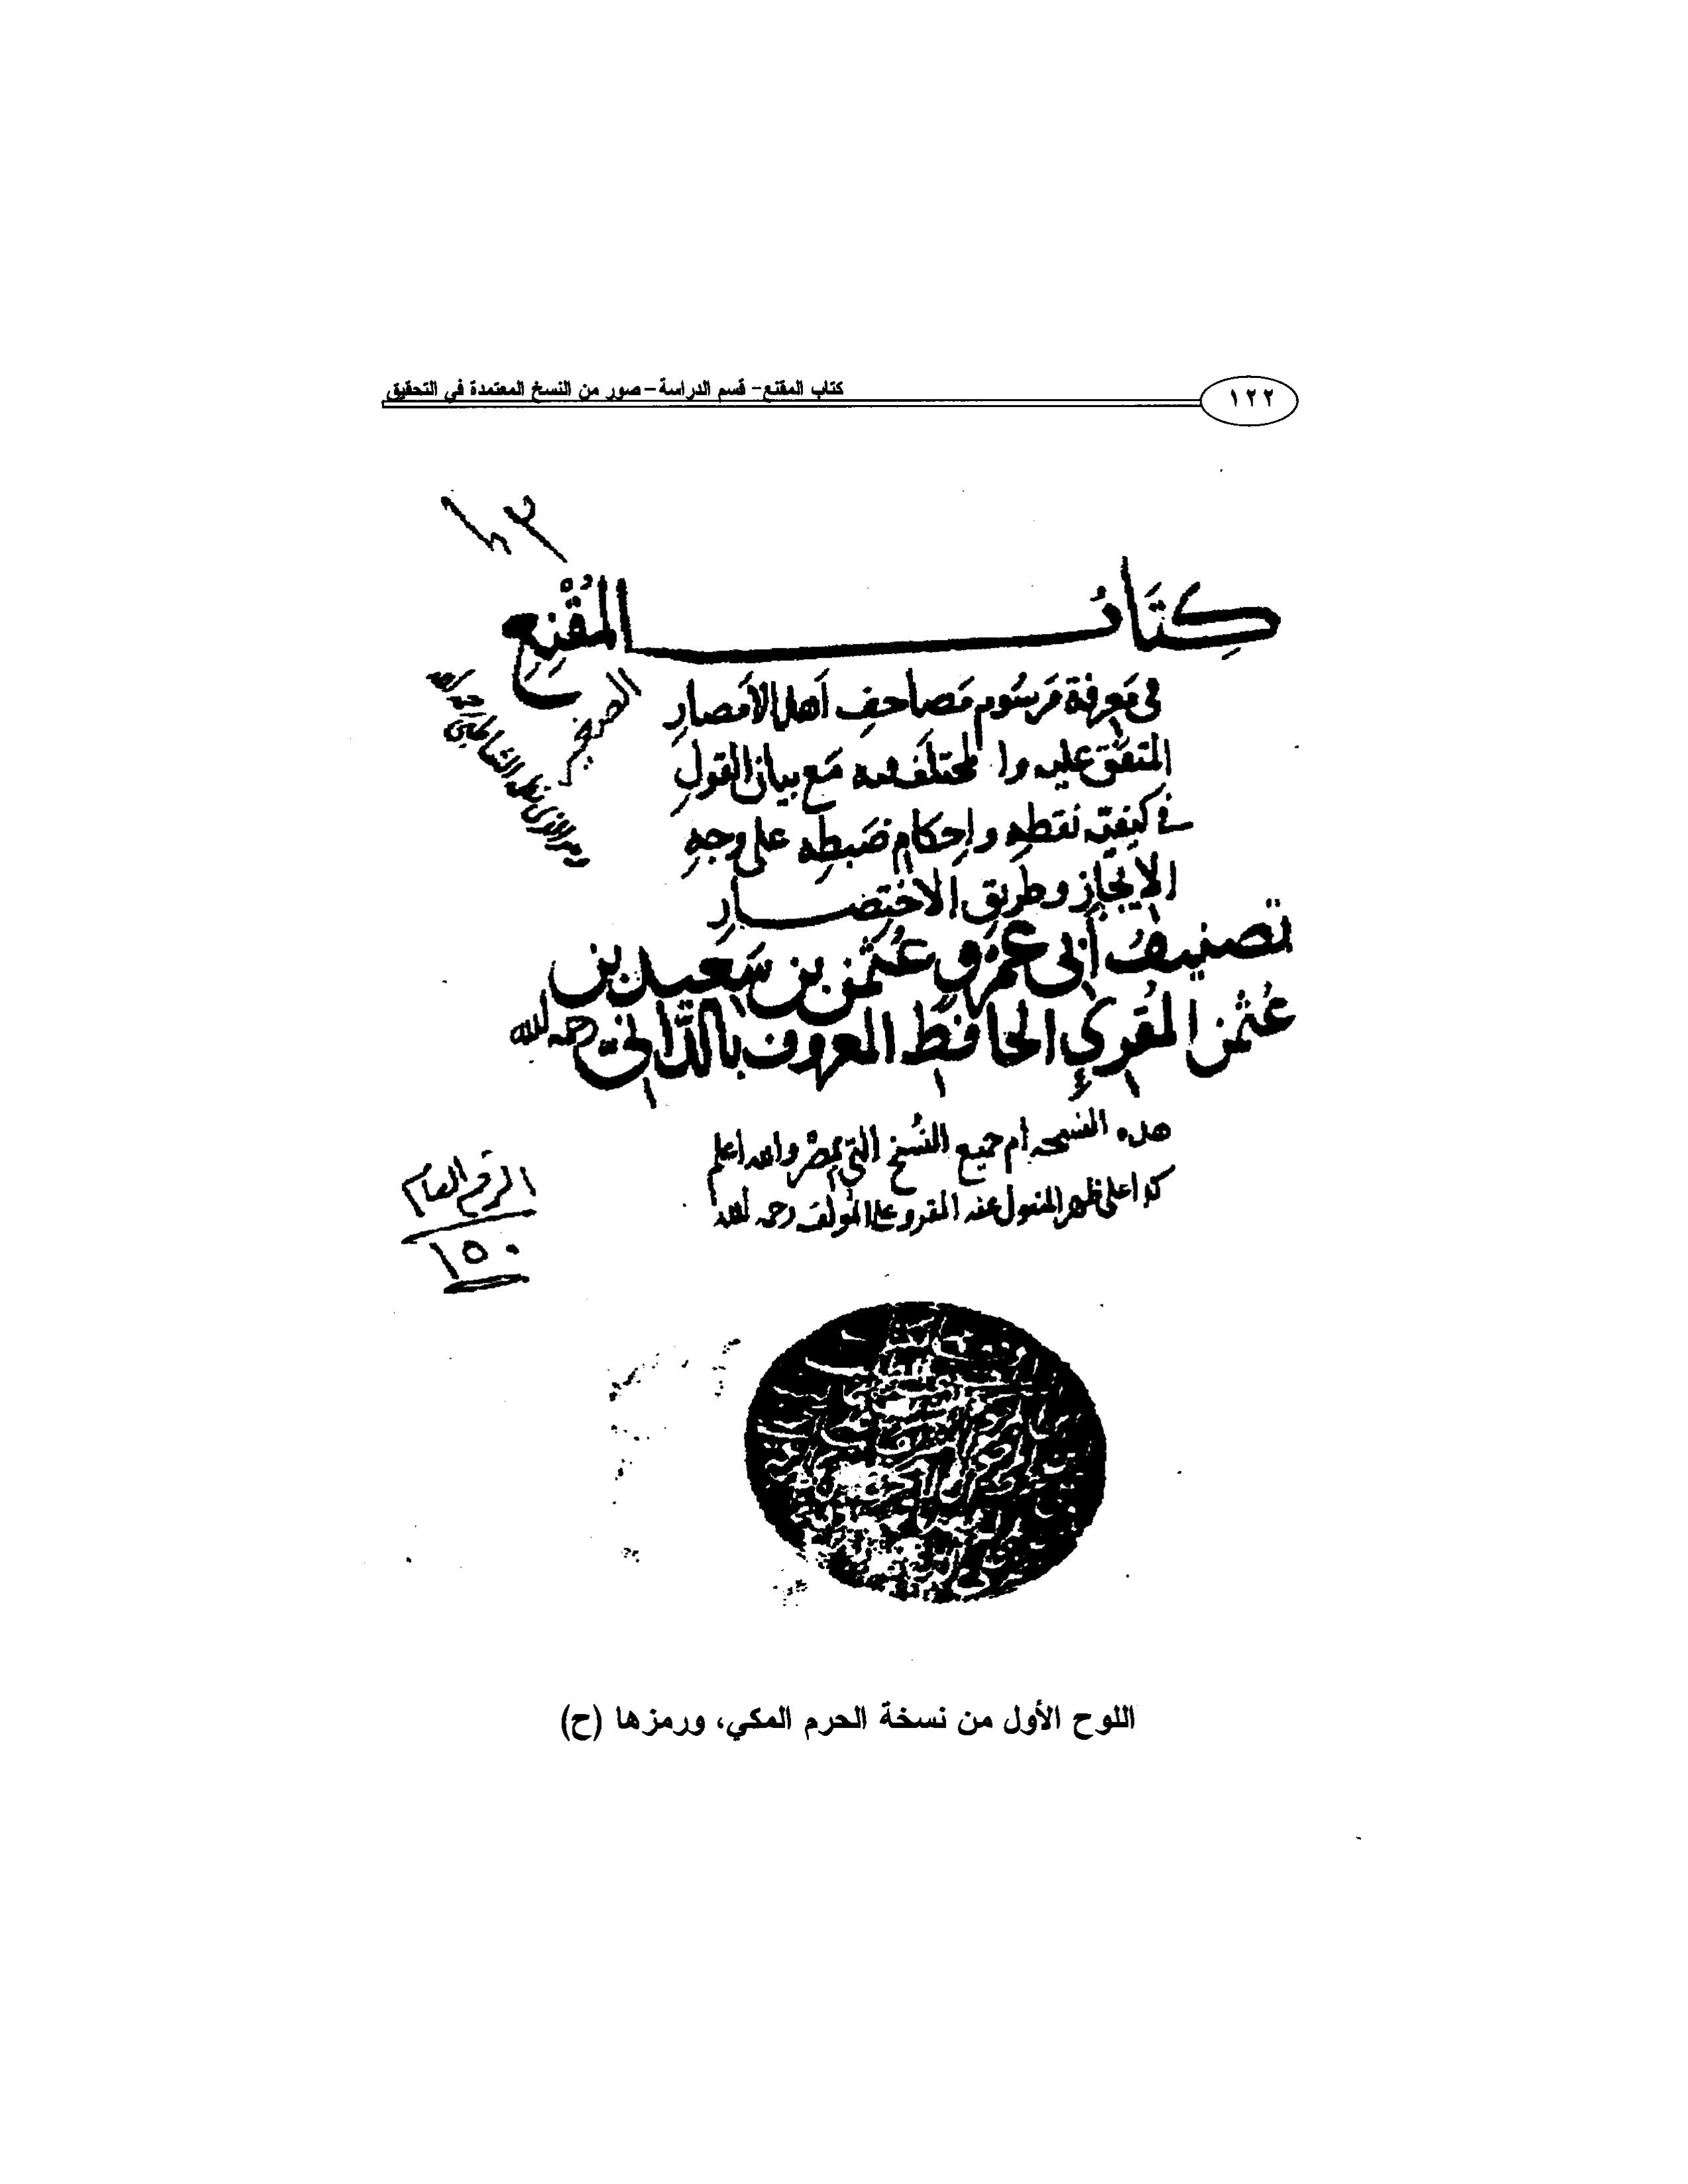 ١٢٢
كتاب المقنع- قسم الدراسة – صور من النسخ المعتمدة في التحقيق
كِتَابُ المُقْنِعِ
الصغير
في مَعرفة مَرسُوم مَصاحفِ أهل الأمصارِ
المتفق عليه والمختلَف فيه مَع بيان القولِ
في كيفية نقطِهِ وإحكام ضَبطِهِ على وجهِ
الإيجازِ وطَريقِ الاختِصارِ
تصنيفُ أبي عمرٍو عُثمن بن سَعيد بن
عُثمن المُقرئِ الحافظ المعروف بالدَّاني رحمه الله
هذه النسخه ام جميع النُسخ التي بمصْر والله اعلم
كذا على ظهر المنقول عنه المقروِّ على المُؤلف رحمه الله
الرقم العام
١٥٠
اللوح الأول من نسخة الحرم المكي، ورمزها (ح)